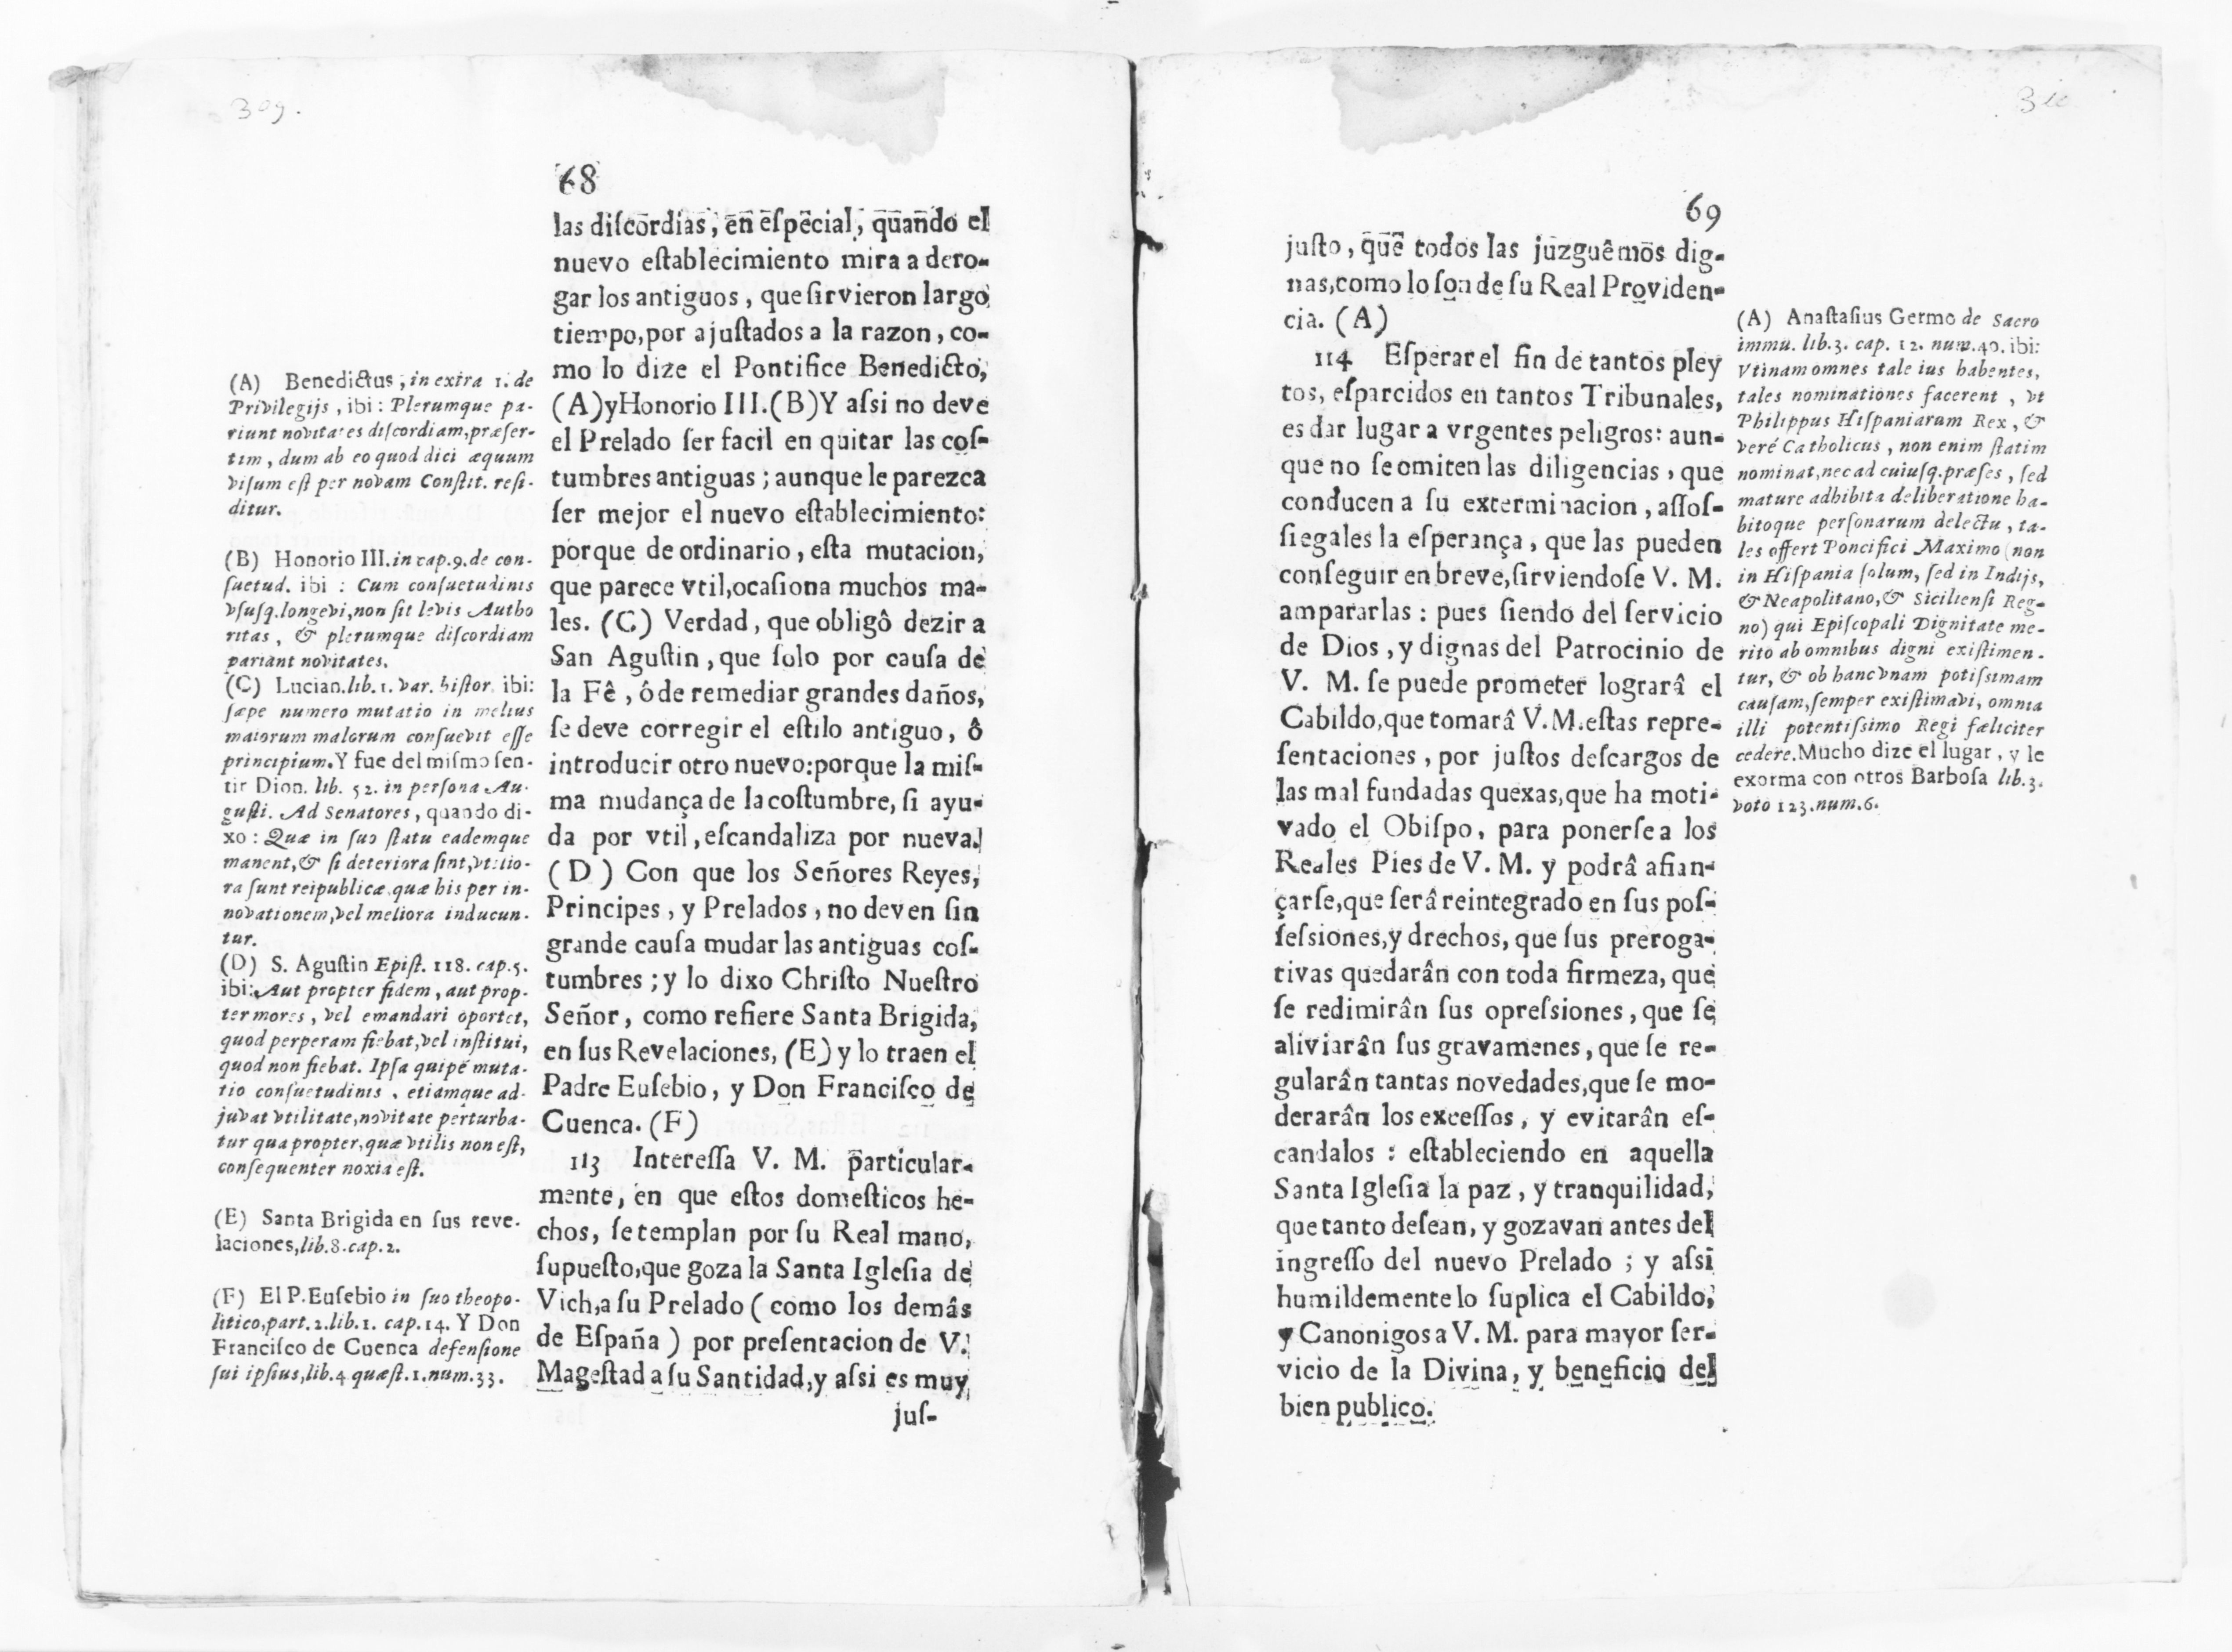 309.
68
las diſcordias, en eſpecial, quando el
nuevo eſtablecimiento mira a dero-
gar los antiguos, que ſirvieron largo
tiempo, por ajuſtados a la razon, co-
mo lo dize el Pontifice Benedicto,
(A) y Honorio III. (B) Y aſsi no deve
el Prelado ſer facil en quitar las coſ-
tumbres antiguas; aunque le parezca
ſer mejor el nuevo eſtablecimiento:
porque de ordinario, eſta mutacion,
que parece vtil, ocaſiona muchos ma-
les. (C) Verdad, que obligô dezir a
San Aguſtin, que ſolo por cauſa de
la Fê, ô de remediar grandes daños,
ſe deve corregir el eſtilo antiguo, ô
introducir otro nuevo: porque la miſ-
ma mudança de la coſtumbre, ſi ayu-
da por vtil, eſcandaliza por nueva.
(D) Con que los Señores Reyes,
Principes, y Prelados, no deven ſin
grande cauſa mudar las antiguas coſ-
tumbres; y lo dixo Chriſto Nueſtro
Señor, como refiere Santa Brigida,
en ſus Revelaciones, (E) y lo traen el
Padre Euſebio, y Don Franciſco de
Cuenca. (F)
113 Intereſſa V. M. particular-
mente, en que eſtos domeſticos he-
chos, ſe templan por ſu Real mano,
ſupueſto, que goza la Santa Igleſia de
Vich, a ſu Prelado (como los demâs
de Eſpaña) por preſentacion de V.
Mageſtad a ſu Santidad, y aſsi es muy
juſ-
(A) Benedictus, in extra 1. de
Privilegijs, ibi: Plerumque pa-
riunt novitates diſcordiam, præſer-
tim, dum ab eo quod dici æquum
viſum eſt per novam Conſtit. reſi-
ditur.
(B) Honorio III. in cap. 9. de con-
ſuetud. ibi: Cum conſuetudinis
vſuſq. longevi, non ſit levis Autho
ritas, & plerumque diſcordiam
pariant novitates.
(C) Lucian. lib. 1. var. hiſtor. ibi:
ſæpe numero mutatio in melius
maiorum malorum conſuevit eſſe
principium. Y fue del miſmo ſen-
tir Dion. lib. 52. in perſona Au-
guſti. Ad Senatores, quando di-
xo: Quæ in ſuo ſtatu eademque
manent, & ſi deteriora ſint, vtilio-
ra ſunt reipublicæ, quæ his per in-
novationem, vel meliora inducun-
tur.
(D) S. Aguſtin Epiſt. 118. cap. 5.
ibi: Aut propter fidem, aut prop-
ter mores, vel emandari oportet,
quod perperam fiebat, vel inſtitui,
quod non fiebat. Ipſa quipè muta-
tio conſuetudinis, etiamque ad-
juvat vtilitate, novitate perturba-
tur qua propter, quæ vtilis non eſt,
conſequenter noxia eſt.
(E) Santa Brigida en ſus reve-
laciones, lib. 8. cap. 2.
(F) El P. Euſebio in ſuo theopo-
litico, part. 2. lib. 1. cap. 14. Y Don
Franciſco de Cuenca defenſione
ſui ipſius, lib. 4 quæſt. 1. num. 33.
69
juſto, que todos las juzguêmos dig-
nas, como lo ſon de ſu Real Providen-
cia. (A)
114 Eſperar el fin de tantos pley
tos, eſparcidos en tantos Tribunales,
es dar lugar a vrgentes peligros: aun-
que no ſe omiten las diligencias, que
conducen a ſu exterminacion, aſſoſ-
ſiegales la eſperança, que las pueden
conſeguir en breve, ſirviendoſe V. M.
ampararlas: pues ſiendo del ſervicio
de Dios, y dignas del Patrocinio de
V. M. ſe puede prometer lograrâ el
Cabildo, que tomarâ V. M. eſtas repre-
ſentaciones, por juſtos deſcargos de
las mal fundadas quexas, que ha moti-
vado el Obiſpo, para ponerſe a los
Reales Pies de V. M. y podrâ afian-
çarſe, que ſerâ reintegrado en ſus poſ-
ſeſsiones, y drechos, que ſus preroga-
tivas quedarân con toda firmeza, que
ſe redimirân ſus opreſsiones, que ſe
aliviarân ſus gravamenes, que ſe re-
gularân tantas novedades, que ſe mo-
derarân los exceſſos, y evitarân eſ-
candalos: eſtableciendo en aquella
Santa Igleſia la paz, y tranquilidad,
que tanto deſean, y gozavan antes del
ingreſſo del nuevo Prelado; y aſsi
humildemente lo ſuplica el Cabildo,
y Canonigos a V. M. para mayor ſer-
vicio de la Divina, y beneficio del
bien publico.
(A) Anaſtaſius Germo de Sacro
immu. lib. 3. cap. 12. num. 40. ibi:
Vtinam omnes tale ius habentes,
tales nominationes facerent, vt
Philippus Hiſpaniarum Rex, &
veré Catholicus, non enim ſtatim
nominat, nec ad cuiuſq. præſes, ſed
mature adhibita deliberatione ha-
bitoque perſonarum delectu, ta-
les offert Poncifici Maximo (non
in Hiſpania ſolum, ſed in Indijs,
& Neapolitano, & Sicilienſi Reg-
no) qui Epiſcopali Dignitate me-
rito ab omnibus digni exiſtimen-
tur, & ob hanc vnam potiſsimam
cauſam, ſemper exiſtimavi, omnia
illi potentiſsimo Regi fæliciter
cedere. Mucho dize el lugar, y le
exorma con otros Barboſa lib. 3.
voto 123. num. 6.